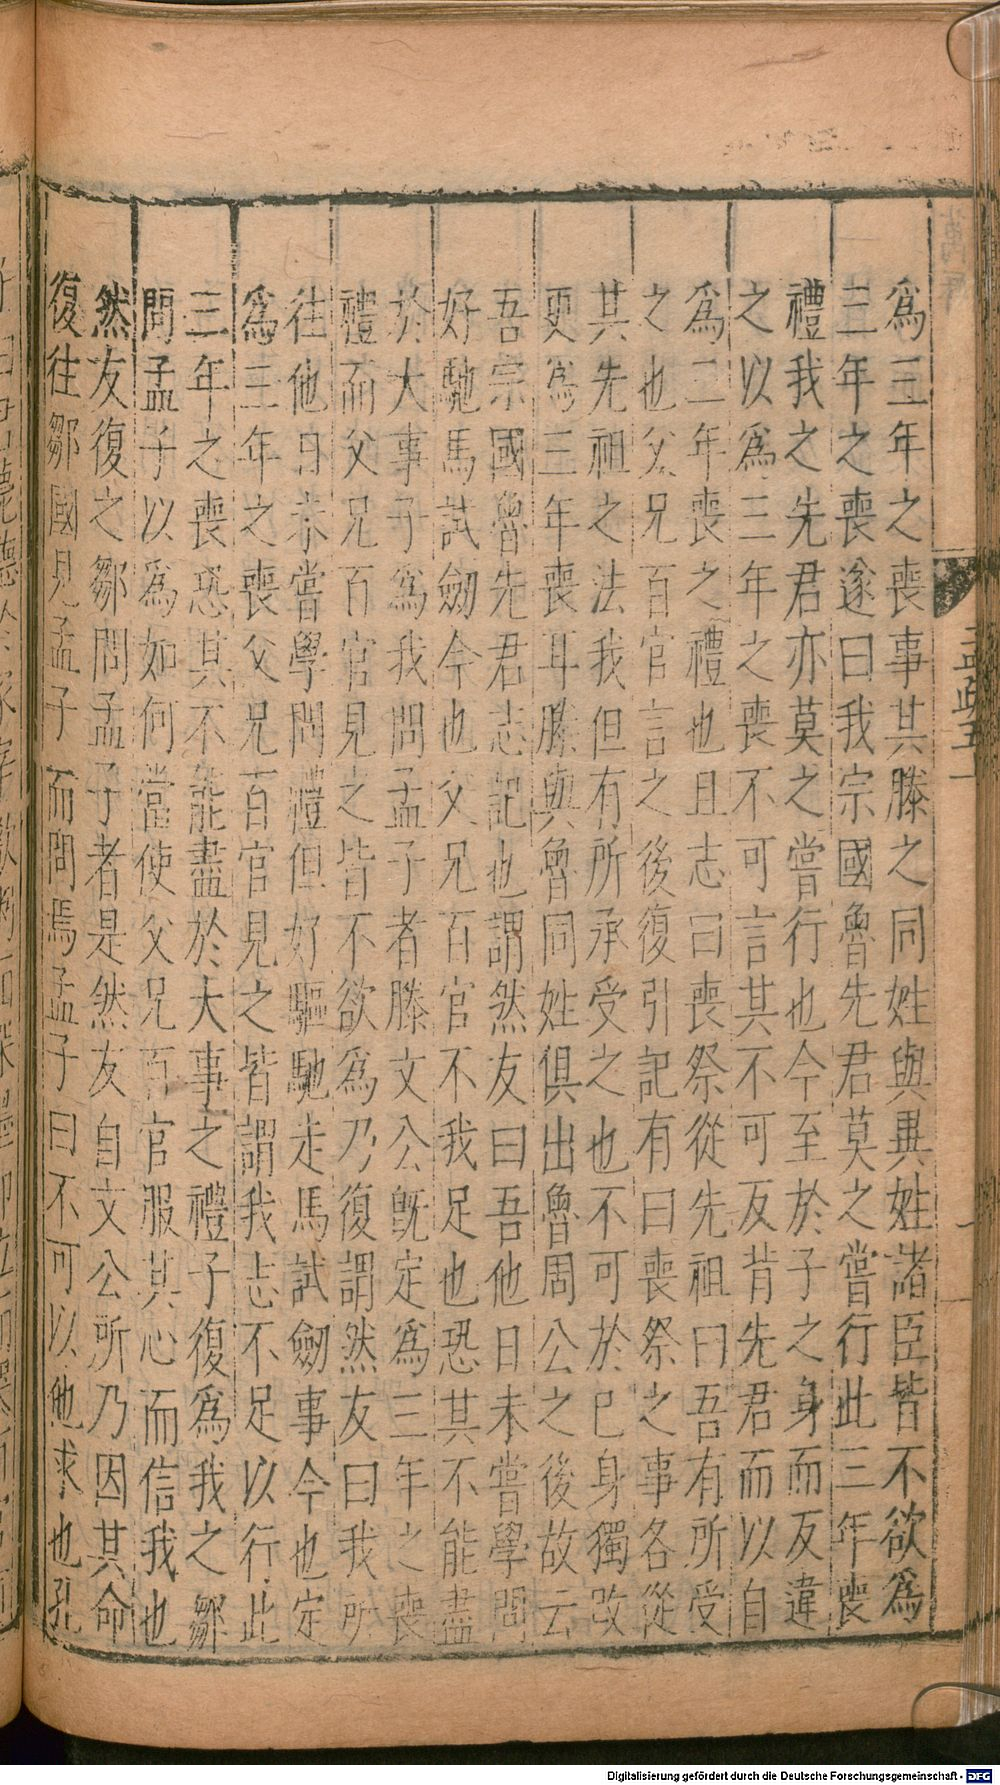 爲三年之喪事其滕之同姓與異姓諸臣皆不欲爲
三年之喪遂曰我宗國魯先君莫之嘗行此三年喪
禮我之先君亦莫之嘗行也今至於子之身而反違
之以爲三年之喪不可言其不可反背先君而以自
爲三年喪之禮也且志曰喪祭從先祖曰吾有所受
之也父兄百官言之後復引記有曰喪祭之事各從
其先祖之法我但有所承受之也不可於已身獨改
更爲三年喪耳滕與魯同姓俱出魯周公之後故云
吾宗國魯先君志記也謂然友曰吾他日未嘗學問
好馳馬試劒今也父兄百官不我足也恐其不能盡
於大事子爲我問孟子者滕文公旣定爲三年之喪
禮而父兄百官見之皆不欲爲乃復謂然友曰我所
往他日未嘗學問禮但好驅馳走馬試劒事今也定
爲三年之喪父兄百官見之皆謂我志不足以行此
三年之喪恐其不能盡於大事之禮子復爲我之鄒
問孟子以爲如何當使父兄百官服其心而信我也
然友復之鄒問孟子者是然友自文公所乃因其命
復往鄒國見孟子而問焉孟子曰不可以他求也孔
Digitalisierung gefördert durch die Deutsche Forschungsgemeinschaft - DFG